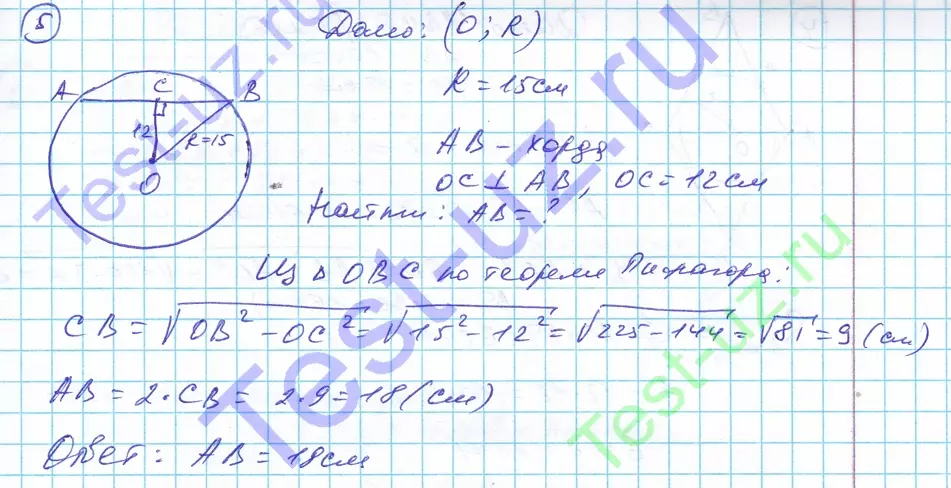 5
Дано: (O; R)
R = 15 см
AB – хорда
OC ⊥ AB, OC = 12 см
Найти: AB = ?
A C B
12 R=15
O
Из Δ OBC по теореме Пифагора:
CB = √OB² – OC² = √15² – 12² = √225 – 144 = √81 = 9 (см)
AB = 2·CB = 2·9 = 18 (см)
Ответ: AB = 18 см
Test-uz.ru
Test-uz.ru
Test-uz.ru